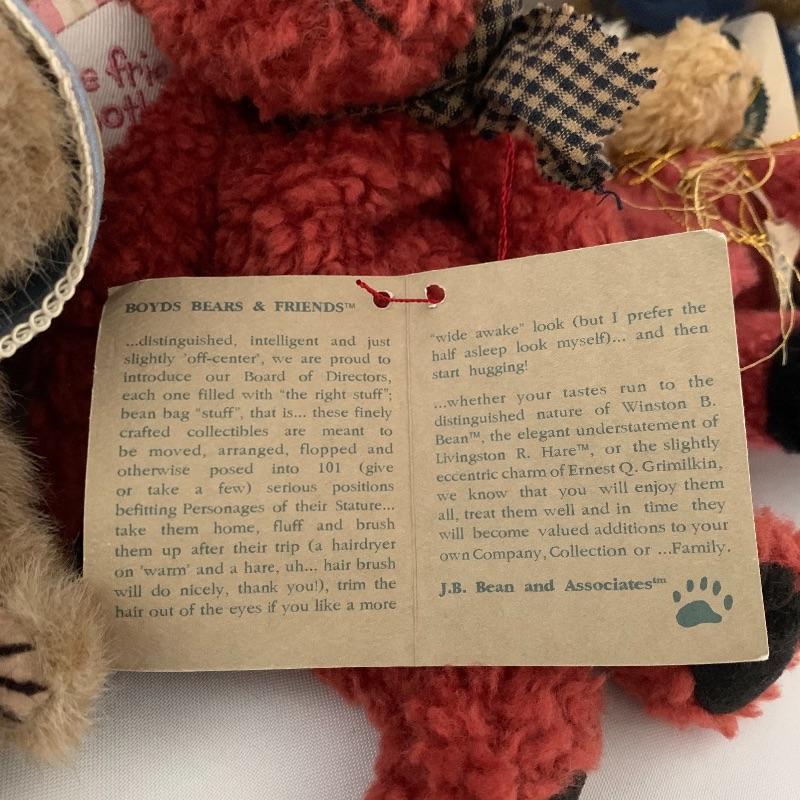 e frie
oth
BOYDS BEARS & FRIENDS™
...distinguished, intelligent and just
slightly 'off-center', we are proud to
introduce our Board of Directors,
each one filled with "the right stuff";
bean bag "stuff", that is... these finely
crafted collectibles are meant to
be moved, arranged, flopped and
otherwise posed into 101 (give
or take a few) serious positions
befitting Personages of their Stature...
take them home, fluff and brush
them up after their trip (a hairdryer
on 'warm' and a hare, uh... hair brush
will do nicely, thank you!), trim the
hair out of the eyes if you like a more
"wide awake" look (but I prefer the
half asleep look myself)... and then
start hugging!
...whether your tastes run to the
distinguished nature of Winston B.
Bean™, the elegant understatement of
Livingston R. Hare™, or the slightly
eccentric charm of Ernest Q. Grimilkin,
we know that you will enjoy them
all, treat them well and in time they
will become valued additions to your
own Company, Collection or ...Family.
J.B. Bean and Associates™